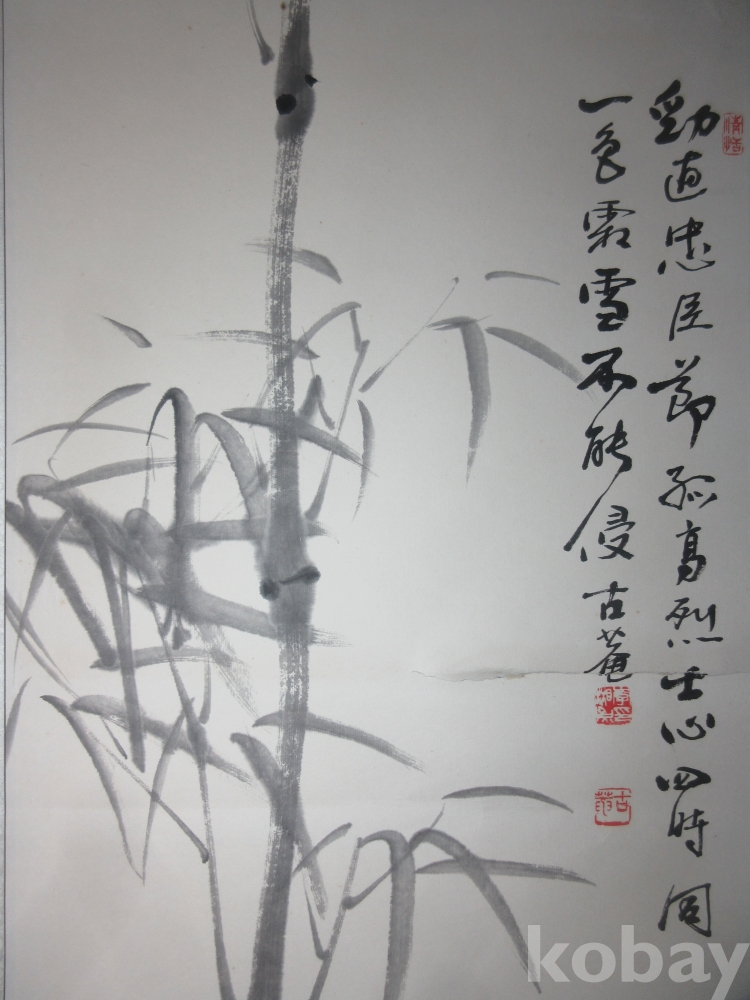 勁直忠臣節孤高烈士心四時同
一色霜雪不能侵 古菴
kobay